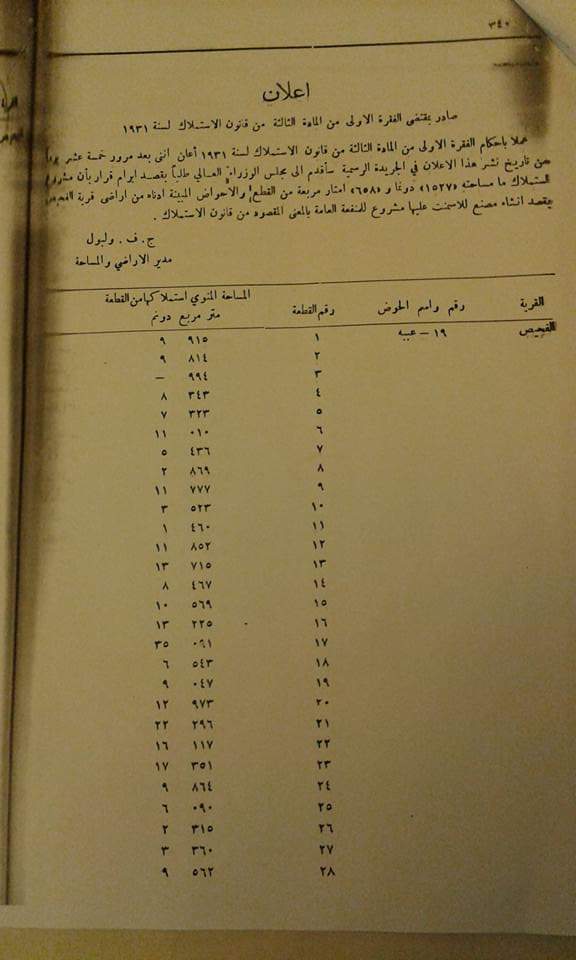 ٣٤٠
اعلان
صادر بمقتضى الفقرة الاولى من المادة الثالثة من قانون الاستملاك لسنة ١٩٣١
عملا باحكام الفقرة الاولى من المادة الثالثة من قانون الاستملاك لسنة ١٩٣١ أعلن انني بعد مرور خمسة عشر يوماً
من تاريخ نشر هذا الاعلان في الجريدة الرسمية سأقدم الى مجلس الوزراء العالي طلباً بقصد ابرام قرار بأن مشروع
استملاك ما مساحته «١٥٢٧» دونما و «٦٥٨» امتار مربعة من القطع والأحواض المبينة ادناه من اراضي قرية الفحيص
بقصد انشاء مصنع للاسمنت عليها مشروع للمنفعة العامة بالمعنى المقصود من قانون الاستملاك .
ج . ف . ولبول
مدير الاراضي والمساحة
القرية رقم واسم الحوض رقم القطعة المساحة المنوي استملاكها من القطعة
متر مربع دونم
الفحيص ١٩ – عبيه ١ ٩١٥ ٩
٢ ٨١٤ ٩
٣ ٩٩٤ –
٤ ٣٤٣ ٨
٥ ٣٢٣ ٧
٦ ٠١٠ ١١
٧ ٤٣٦ ٥
٨ ٨٦٩ ٢
٩ ٧٧٧ ١١
١٠ ٥٢٣ ٣
١١ ٤٦٠ ١
١٢ ٨٥٢ ١١
١٣ ٧١٥ ١٣
١٤ ٤٦٧ ٨
١٥ ٥٦٩ ١٠
١٦ ٢٢٥ ١٣
١٧ ٠٩١ ٣٥
١٨ ٥٤٣ ٦
١٩ ٠٤٧ ٩
٢٠ ٩٧٣ ١٢
٢١ ٢٩٦ ٢٢
٢٢ ١١٧ ١٦
٢٣ ٣٥١ ١٧
٢٤ ٨٦٤ ٩
٢٥ ٠٩٠ ٦
٢٦ ٣١٥ ٢
٢٧ ٣٦٠ ٣
٢٨ ٥٦٢ ٩